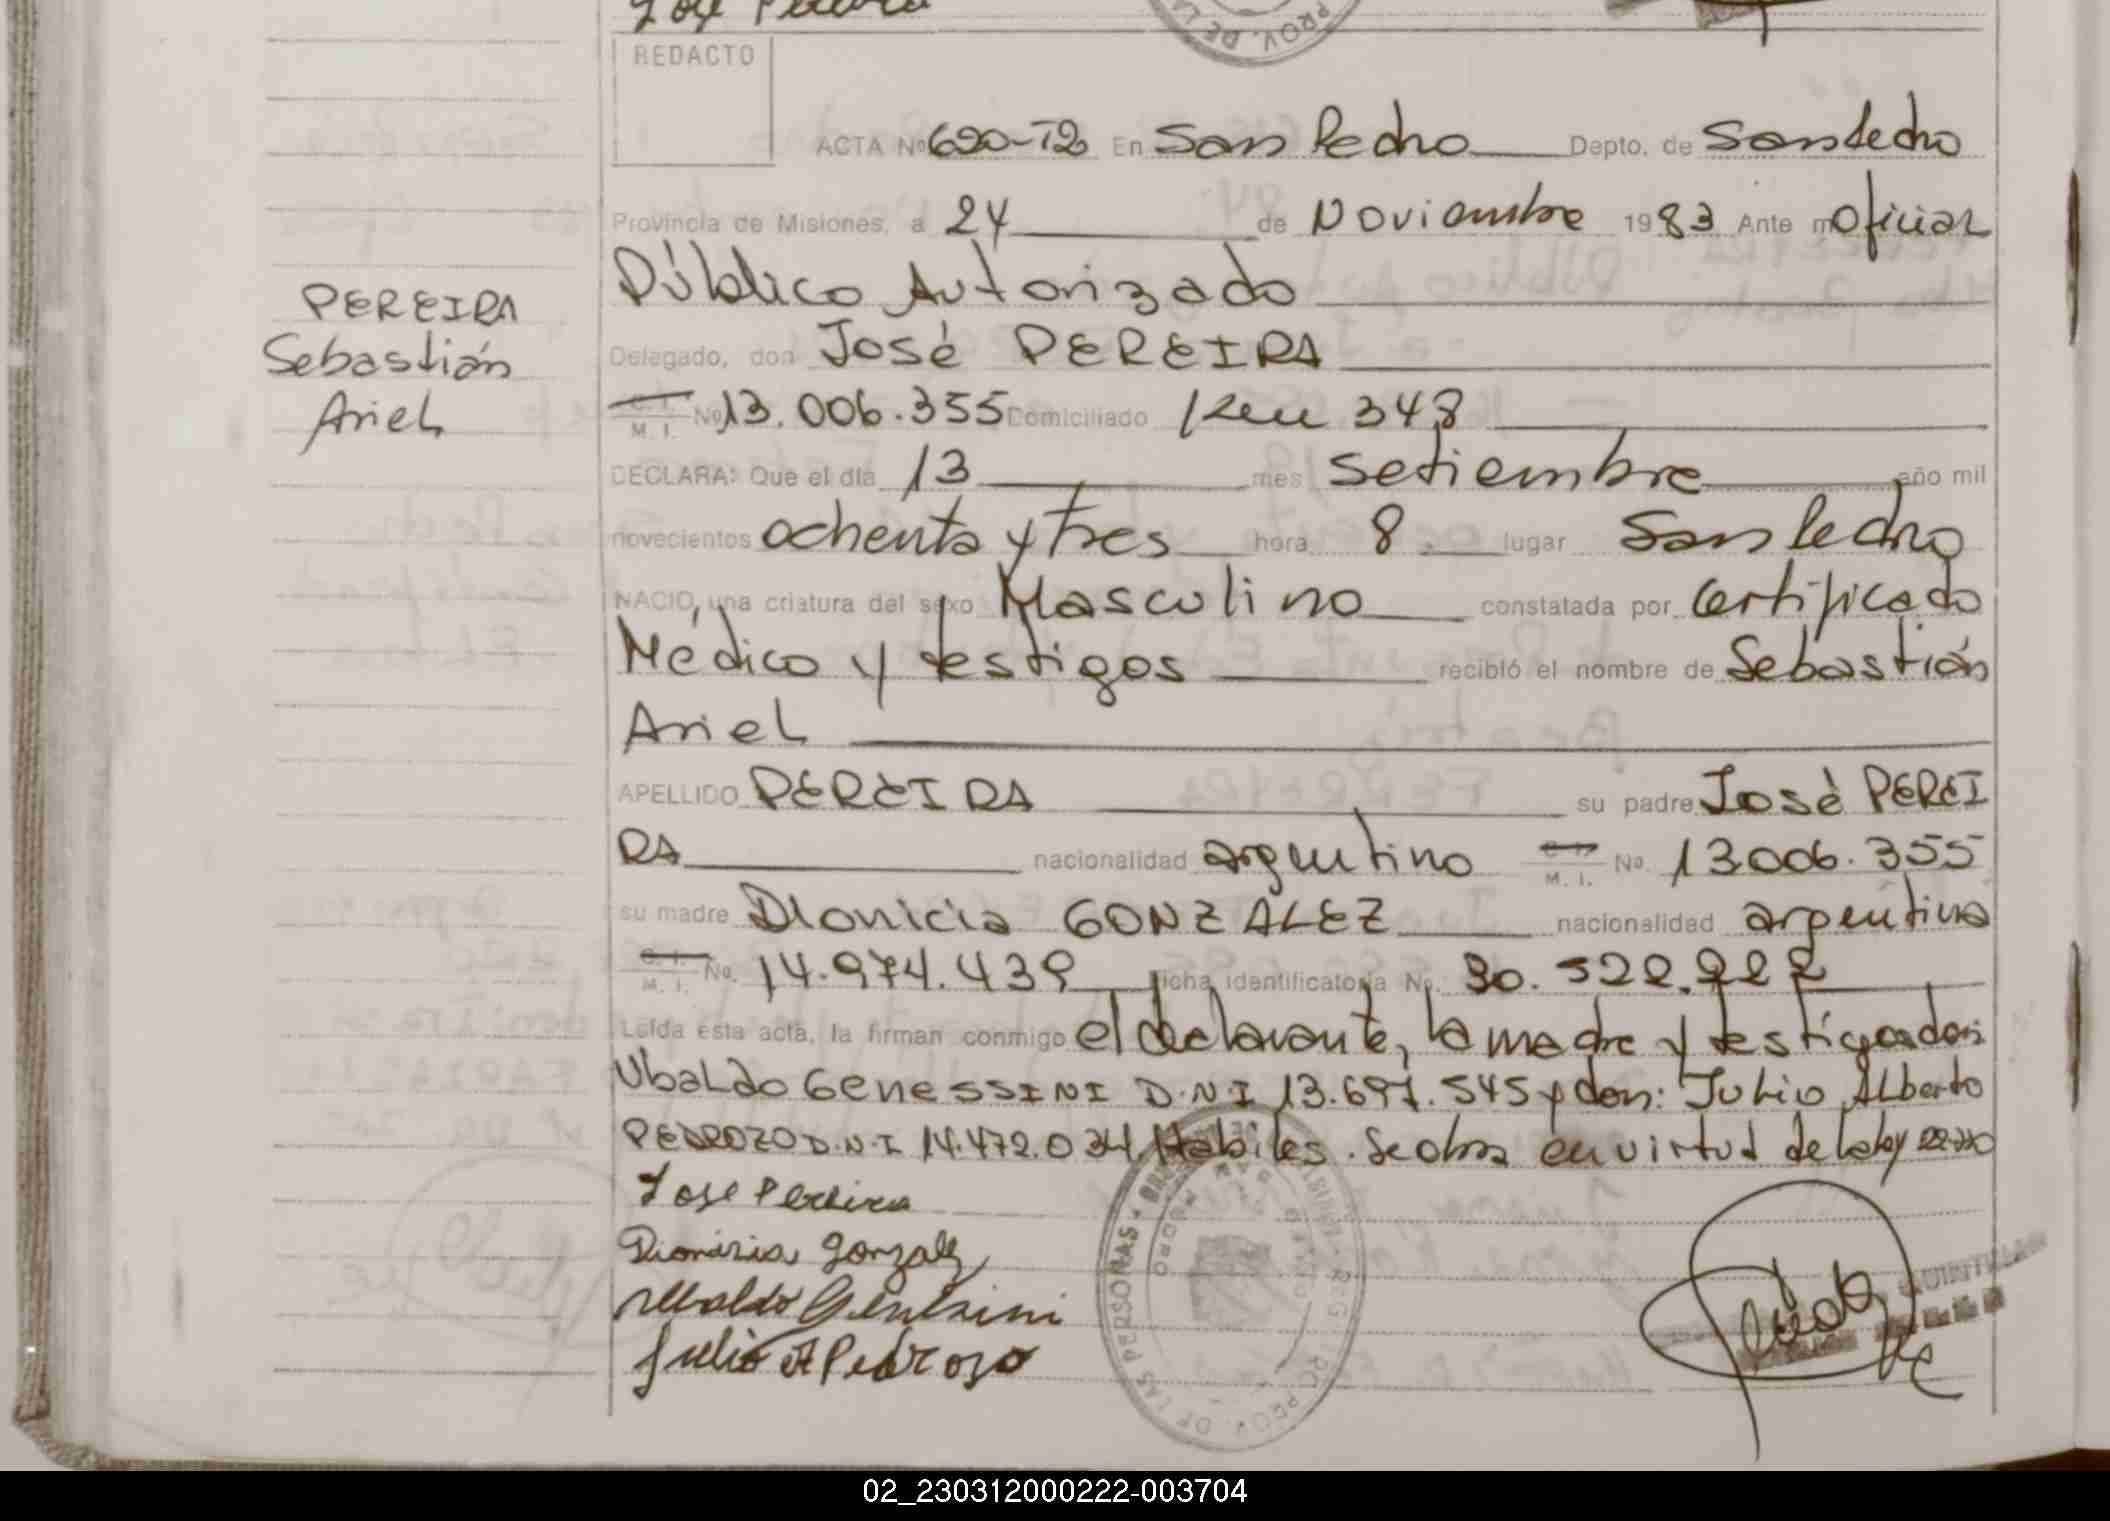 José Pereira
REDACTO
ACTA Nº 620-T2 En San Pedro Depto. de San Pedro
Provincia de Misiones, a 24 de Noviembre 1983 Ante mi Oficial
Público Autorizado
PEREIRA
Sebastián
Ariel
Delegado, don José PEREIRA
C. I. M. I. Nº 13.006.355 Domiciliado Km 348
DECLARA: Que el día 13 mes Setiembre año mil
novecientos ochenta y tres hora 8. lugar San Pedro
NACIO, una criatura del sexo Masculino constatada por Certificado
Médico y testigos recibió el nombre de Sebastián
Ariel
APELLIDO PEREIRA su padre José PEREI
RA nacionalidad argentino C. I. M. I. No. 13006.355
su madre Dionicia GONZALEZ nacionalidad argentina
C. I. M. I. No. 14.974.439 Ficha identificatoria No. 30.522.222
Leída esta acta, la firman conmigo el declarante, la madre y testigos don
Ubaldo Genessini D.N.I 13.697.545 y don: Julio Alberto
PEDROZO D.N.I 14.472.034. Hábiles. Se obra en virtud de la ley
José Pereira
Dionisia Gonzalez
Ubaldo Genessini
Julio A Pedrozo
02_230312000222-003704